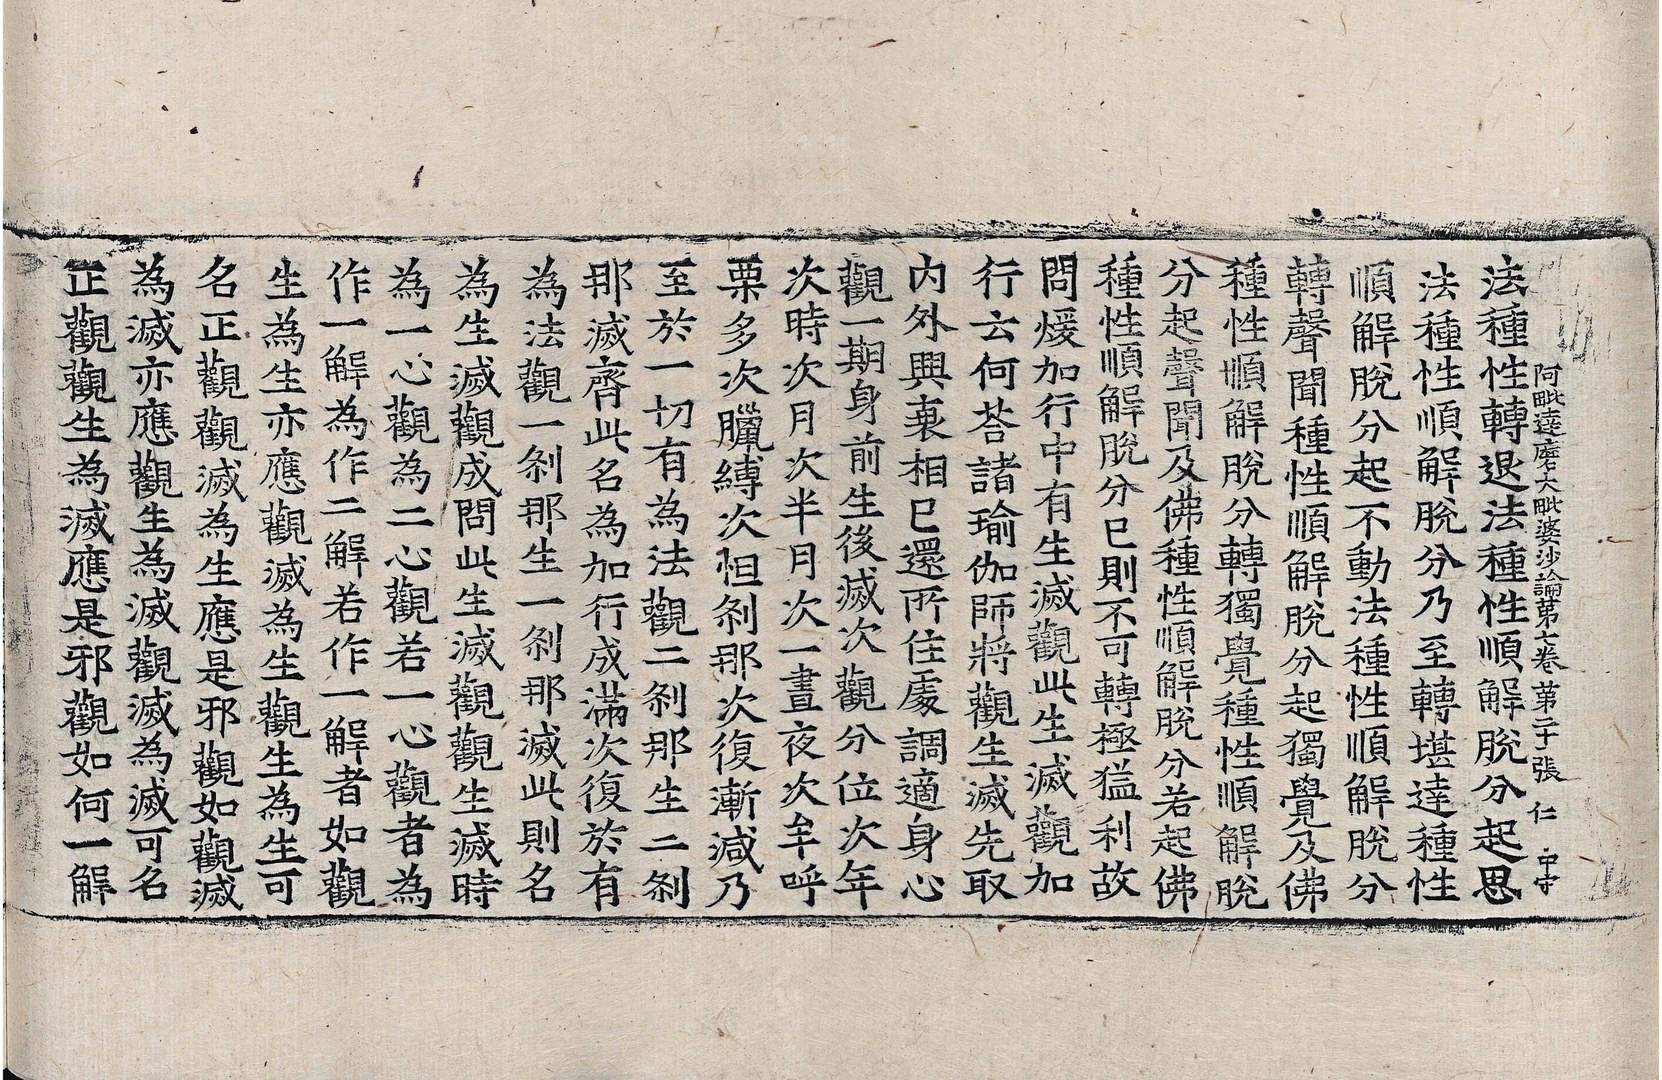 阿毗達磨大毗婆沙論第七卷 第二十張 仁 中守
法種性轉退法種性順解脫分起思
法種性順解脫分乃至轉堪達種性
順解脫分起不動法種性順解脫分
轉聲聞種性順解脫分起獨覺及佛
種性順解脫分轉獨覺種性順解脫
分起聲聞及佛種性順解脫分若起佛
種性順解脫分已則不可轉極猛利故
問煖加行中有生滅觀此生滅觀加
行云何荅諸瑜伽師將觀生滅先取
內外興衰相已還所住處調適身心
觀一期身前生後滅次觀分位次年
次時次月次半月次一晝夜次牟呼
栗多次臘縛次怛剎那次復漸減乃
至於一切有為法觀二剎那生二剎
那滅齊此名為加行成滿次復於有
為法觀一剎那生一剎那滅此則名
為生滅觀成問此生滅觀觀生滅時
為一心觀為二心觀若一心觀者為
作一解為作二解若作一解者如觀
生為生亦應觀滅為生觀生為生可
名正觀觀滅為生應是邪觀如觀滅
為滅亦應觀生為滅觀滅為滅可名
正觀觀生為滅應是邪觀如何一解